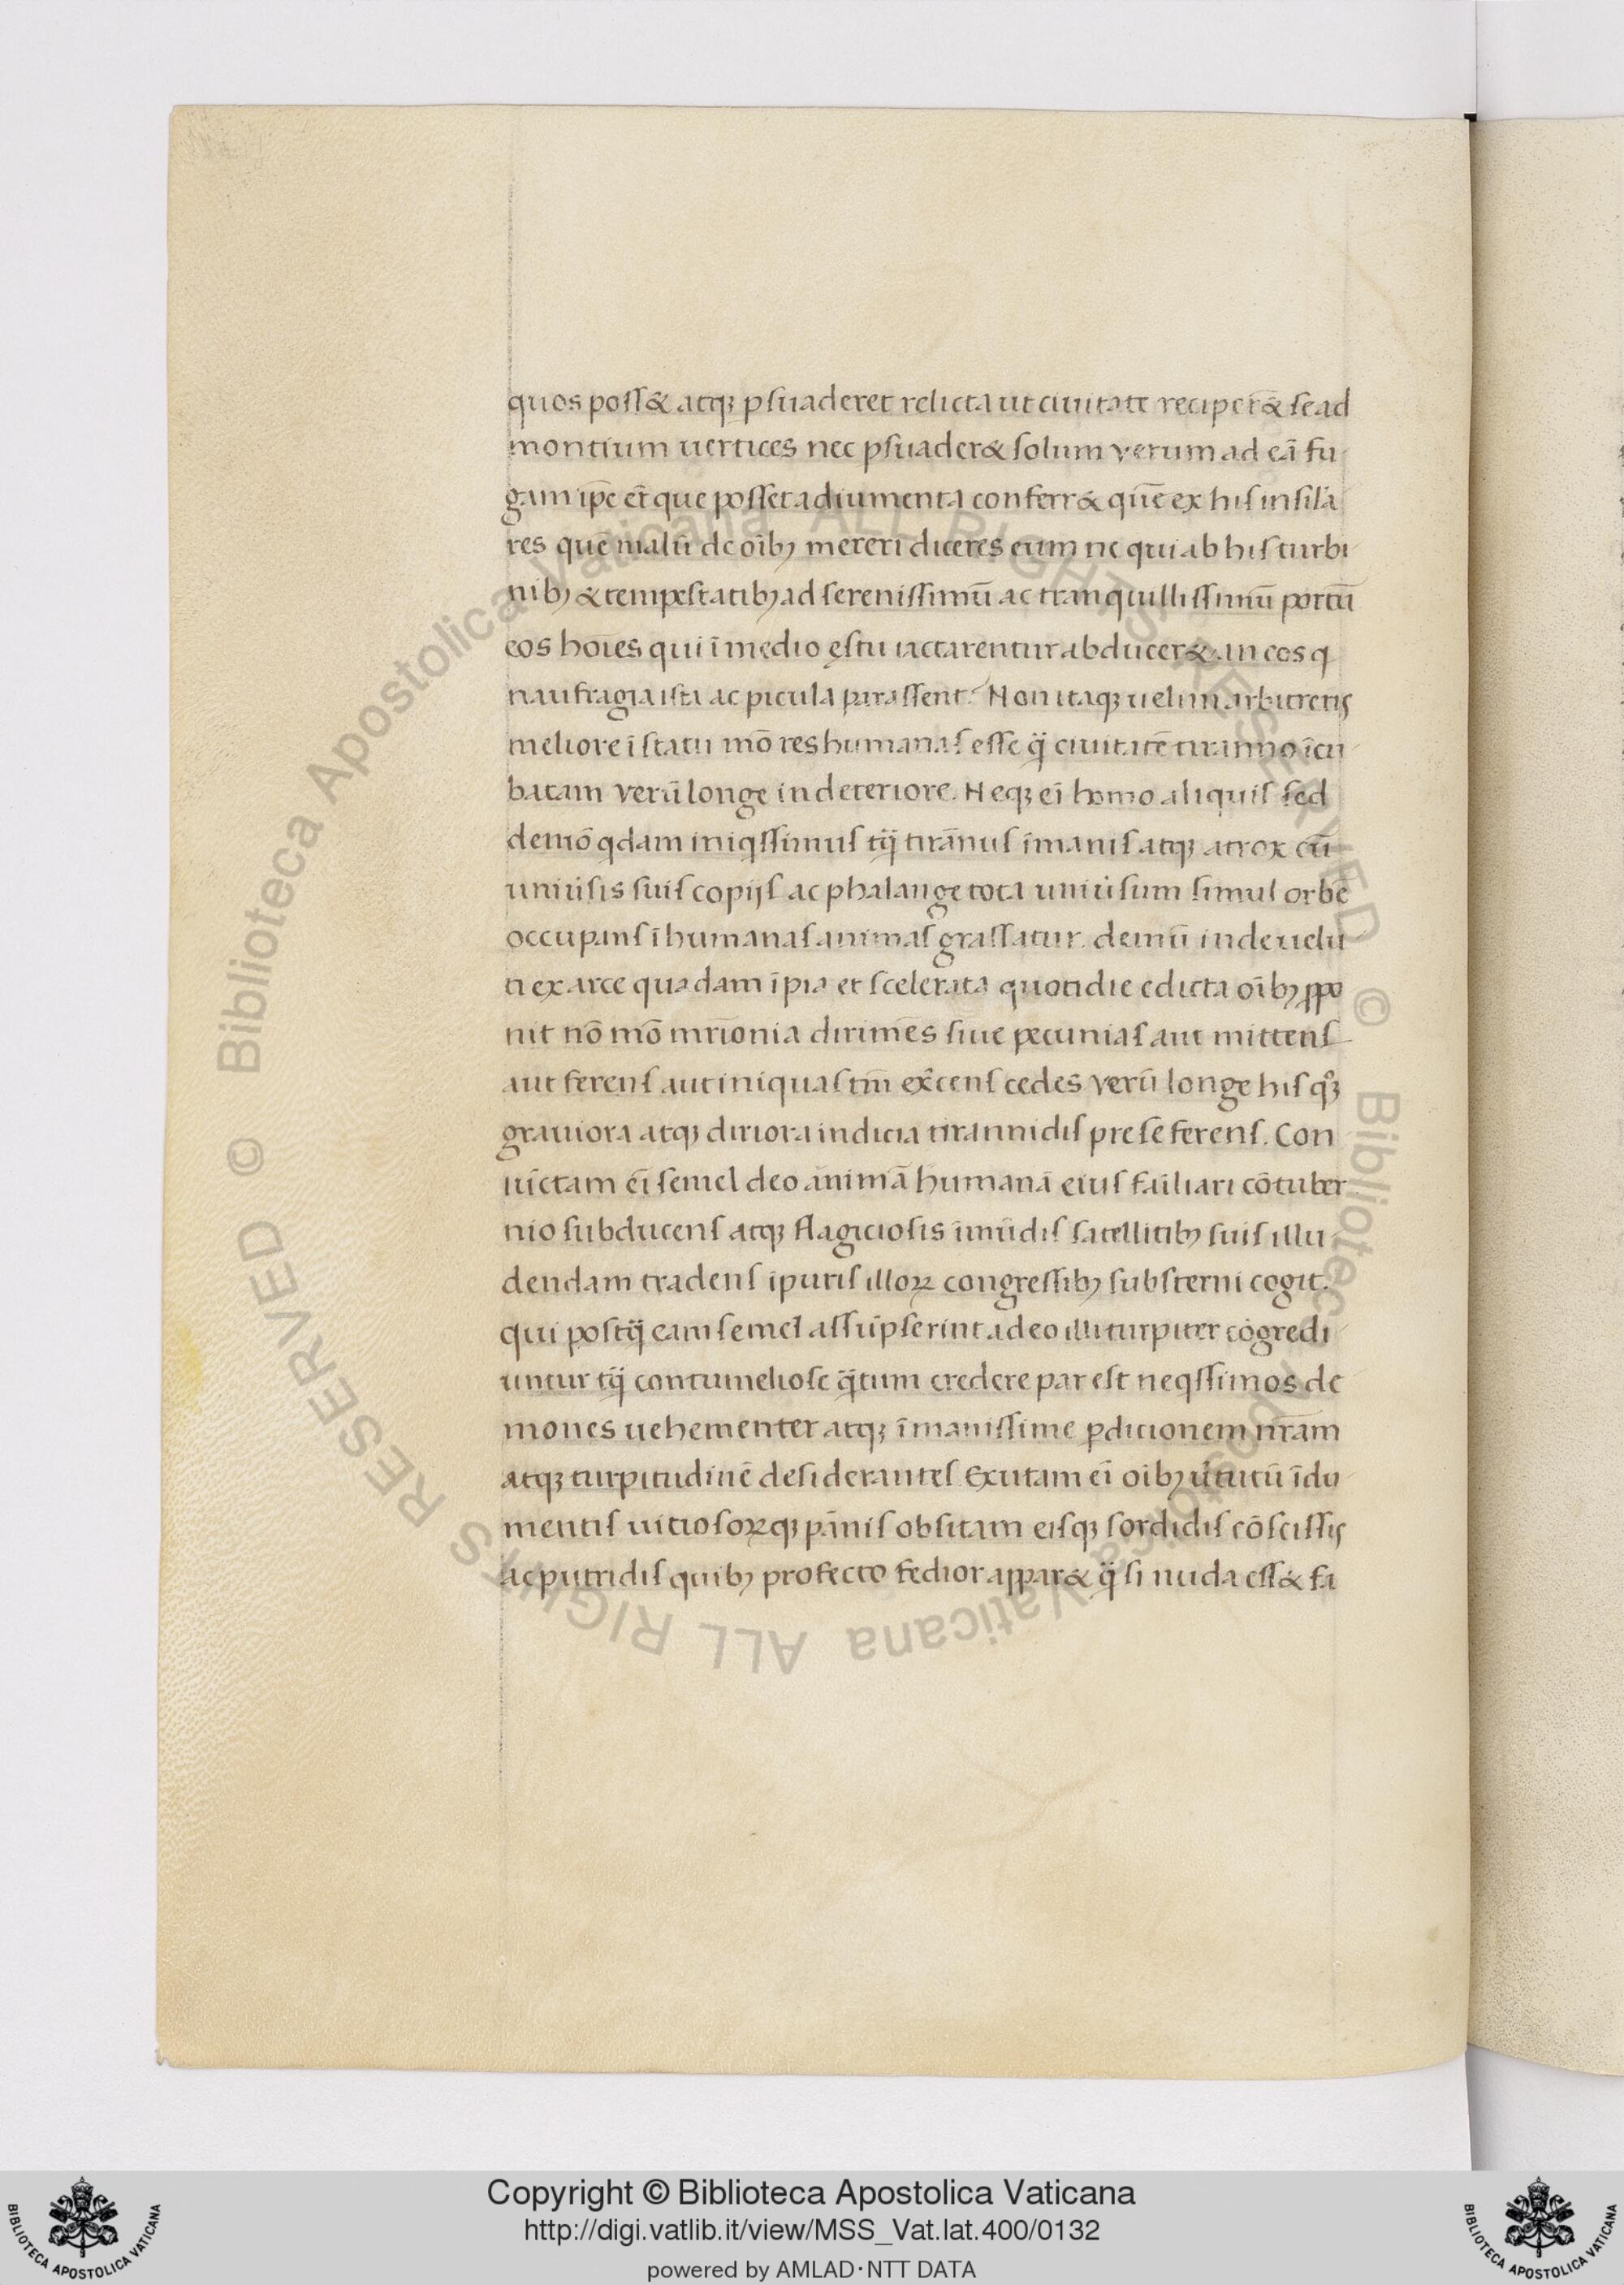 quos poss& atqꝫ ꝑsuaderet relicta ut ciuitate reciper& se ad
montium uertices nec ꝑsuader& solum verum ad eā fu
gam ip̄e et̄ que posset adiumenta conferr& quē ex his insula
res que malū de oīb; mereri diceres eum ne qui ab his turbi
nib; & tempestatib; ad serenissimū ac tranquillissimū portū
eos hoīes qui ī medio ęstu iactarentur abducer& an eos q
naufragia ista ac picula parassent? Non itaqꝫ uelim arbitreris
meliore ī statu mō res humanas esse q̄ ciuitatē tiranno īcu
batam verū longe in deteriore. Neqꝫ eī homo aliquis sed
demō qdam iniqssimus tq̄ tirānus īmanis atqꝫ atrox cū
uniu̓sis suis copijs ac phalange tota uniu̓sum simul orbē
occupans ī humanas animas grassatur. demū inde uelu
ti ex arce quadam īpia et scelerata quotidie edicta oīb; ꝓpo
nit nō mō mr̄ionia dirimēs siue pecunias aut mittens
aut ferens aut iniquas tm̄ ex̄cens cedes verū longe his qꝫ
grauiora atqꝫ diriora indicia tirannidis pre se ferens. Con
iūctam eī semel deo animā humanā eius fail̄iari cōtuber
nio subducens atqꝫ flagiciosis īmūdis satellitib; suis illu
dendam tradens īpuris illoꝝ congressib; substerni cogit.
qui postq̄ eam semel assūpserint adeo illi turpiter cōgredi
untur tq̄ contumeliose q̄tum credere par est neqssimos de
mones uehementer atqꝫ īmanissime ꝑdicionem nr̄am
atqꝫ turpitudinē desiderantes. Exutam eī oīb; u̓tutū īdu
mentis uitiosoꝝqꝫ pānis obsitam eisqꝫ sordidis cōscissis
ac putridis quib; profecto fedior appar& q̄ si nuda ess& fa
Copyright © Biblioteca Apostolica Vaticana
http://digi.vatlib.it/view/MSS_Vat.lat.400/0132
powered by AMLAD·NTT DATA
BIBLIOTECA APOSTOLICA VATICANA
BIBLIOTECA APOSTOLICA VATICANA
© Biblioteca Apostolica Vaticana ALL RIGHTS RESERVED © Biblioteca Apostolica Vaticana ALL RIGHTS RESERVED